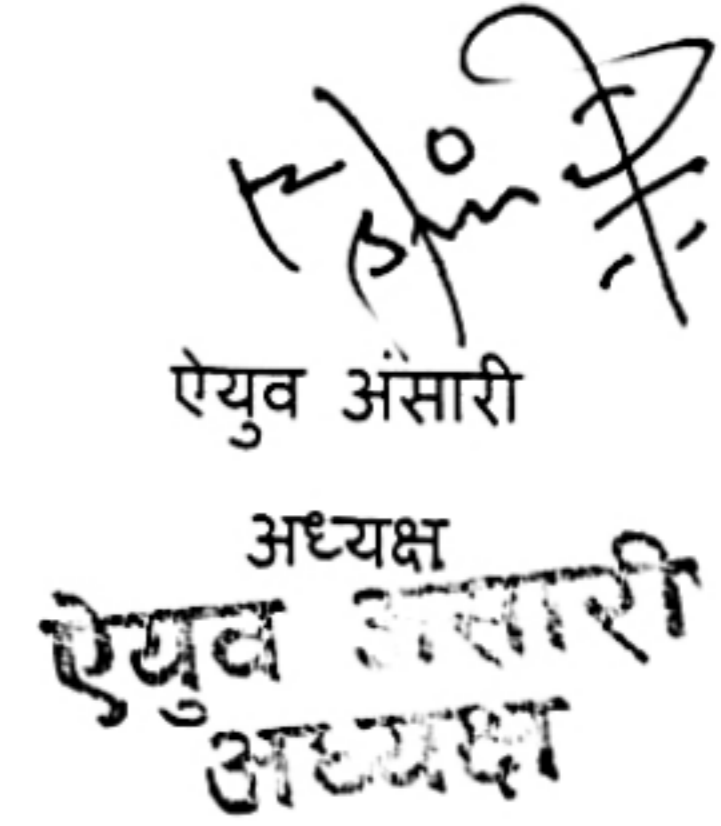 ऐयुव अंसारी
अध्यक्ष
ऐयुव अंसारी
अध्यक्ष